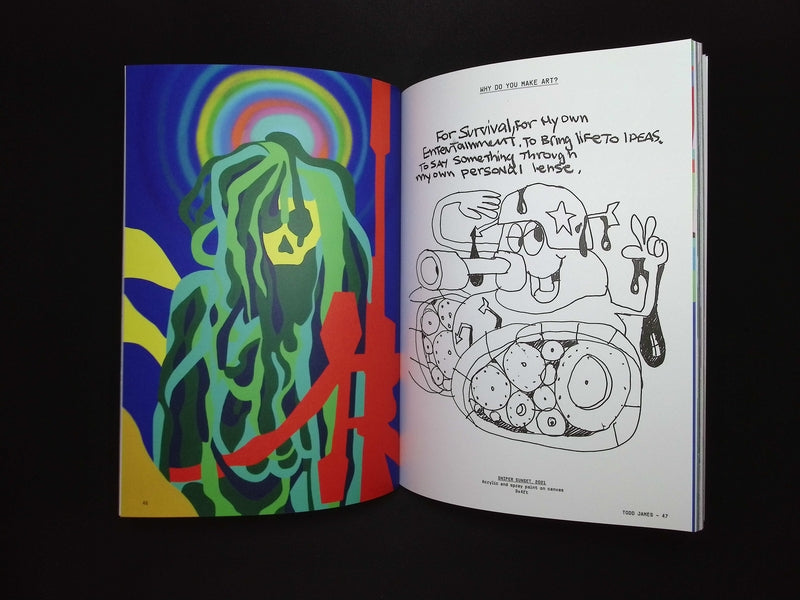 WHY DO YOU MAKE ART?
For Survival, For My Own
Entertainment. To Bring life To IDEAS.
To SAY Something Through
my own personal lense.
SNIPER SUNSET 2021
Acrylic and spray paint on canvas
3x4ft
46
TODD JAMES – 47